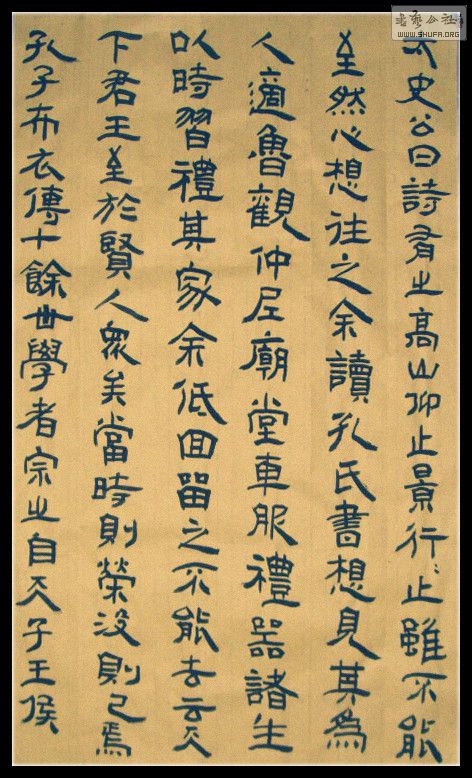 太史公曰詩有之高山仰止景行々止雖不能
至然心想往之余讀孔氏書想見其為
人適魯觀仲尼廟堂車服禮器諸生
以時習禮其家余低回留之不能去云天
下君王至於賢人眾矣當時則榮沒則已焉
孔子布衣傳十餘世學者宗之自天子王侯
书艺公社
WWW.SHUFA.ORG